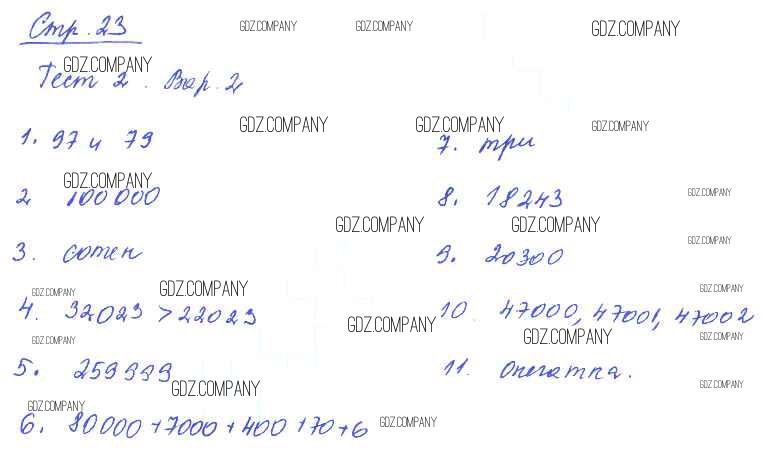 Стр. 23
GDZ.COMPANY GDZ.COMPANY GDZ.COMPANY
GDZ.COMPANY
Тест 2. Вар. 2
GDZ.COMPANY GDZ.COMPANY GDZ.COMPANY
1. 97 и 79
7. три
GDZ.COMPANY
2. 100 000
8. 18243
GDZ.COMPANY
GDZ.COMPANY GDZ.COMPANY
GDZ.COMPANY
3. сотен
9. 20300
GDZ.COMPANY GDZ.COMPANY GDZ.COMPANY
4. 32023 > 22023
10. 47000, 47001, 47002
GDZ.COMPANY
GDZ.COMPANY GDZ.COMPANY GDZ.COMPANY
5. 259999
11.
GDZ.COMPANY GDZ.COMPANY
GDZ.COMPANY
6. 80000 + 7000 + 400 + 70 + 6
GDZ.COMPANY